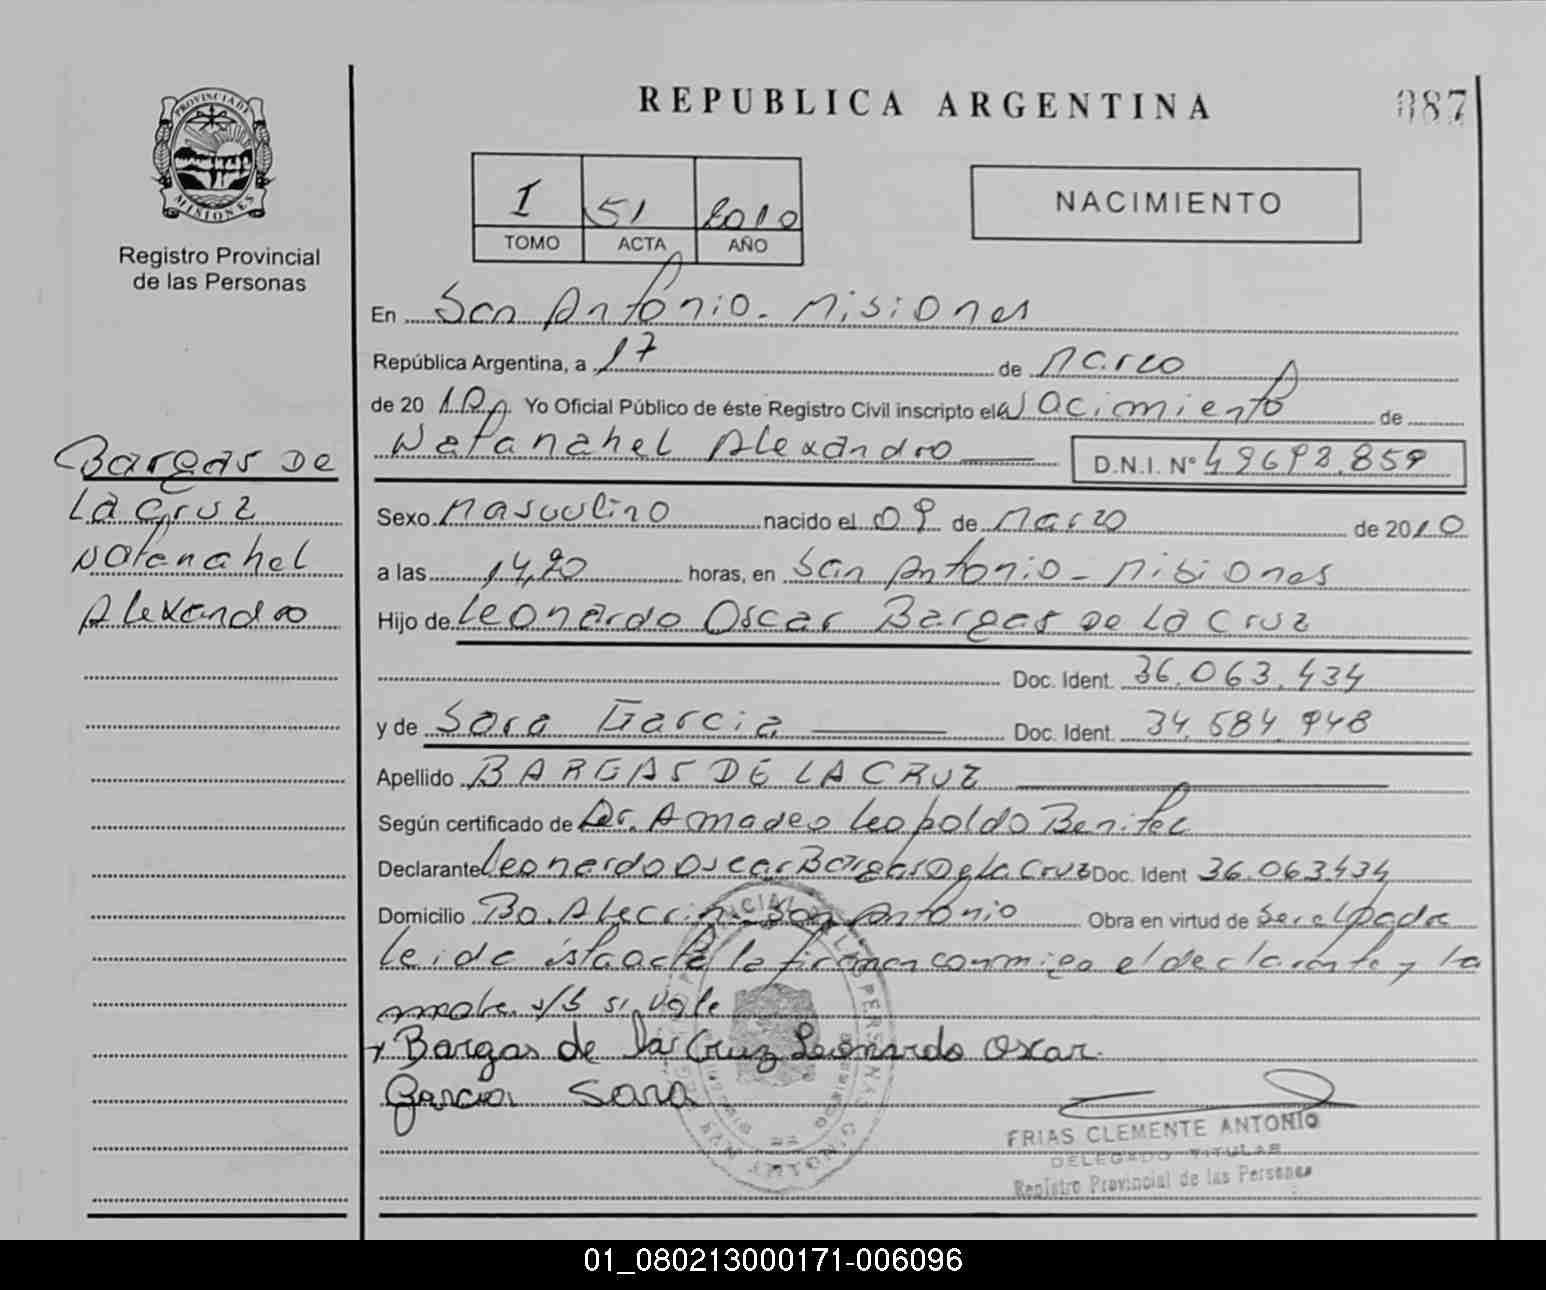 REPUBLICA ARGENTINA
087
PROVINCIA DE
MISIONES
Registro Provincial
de las Personas
I 51 2010
TOMO ACTA AÑO
NACIMIENTO
En San Antonio - Misiones
República Argentina, a 17 de Marzo
de 2010 Yo Oficial Público de éste Registro Civil inscripto el Nacimiento de
Natanahel Alexandro D.N.I. Nº 49692.859
Bargas De
La Cruz
Natanahel
Alexandro
Sexo Masculino nacido el 09 de Marzo de 2010
a las 14,20 horas, en San Antonio - Misiones
Hijo de Leonardo Oscar Bargas De La Cruz
Doc. Ident. 36.063.434
y de Sara Garcia Doc. Ident. 34.584.948
Apellido BARGAS DE LA CRUZ
Según certificado de Dr. Amadeo Leopoldo Benitez
Declarante Leonardo Oscar Bargas De La Cruz Doc. Ident 36.063.434
Domicilio Bo. San Antonio Obra en virtud de Ser el padre
Leida ésta acta la firman conmigo el declarante y la
madre. s/b si, vale
Bargas de la Cruz Leonardo Oscar
Garcia Sara
FRIAS CLEMENTE ANTONIO
DELEGADO TITULAR
Registro Provincial de las Personas
01_080213000171-006096